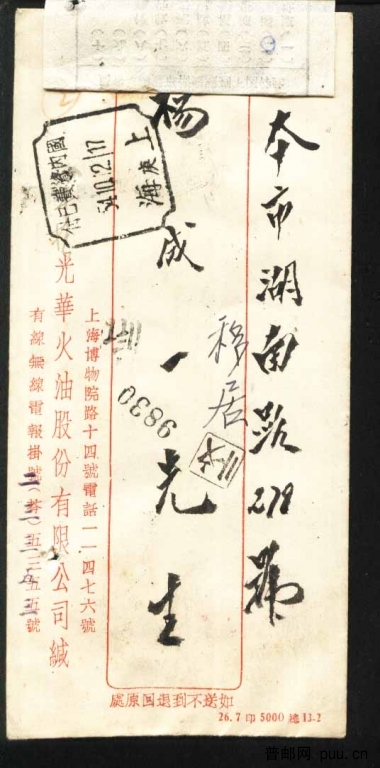 本市湖南路278號
楊成一先生
移居
9830
上海
54.10.2.17
國內資費已付
上海博物院路十四號電話一一四七六號
光華火油股份有限公司緘
有線無線電報掛號
如送不到退回原處
26.7 印 5000 總 13-2
普邮网 puu.cn